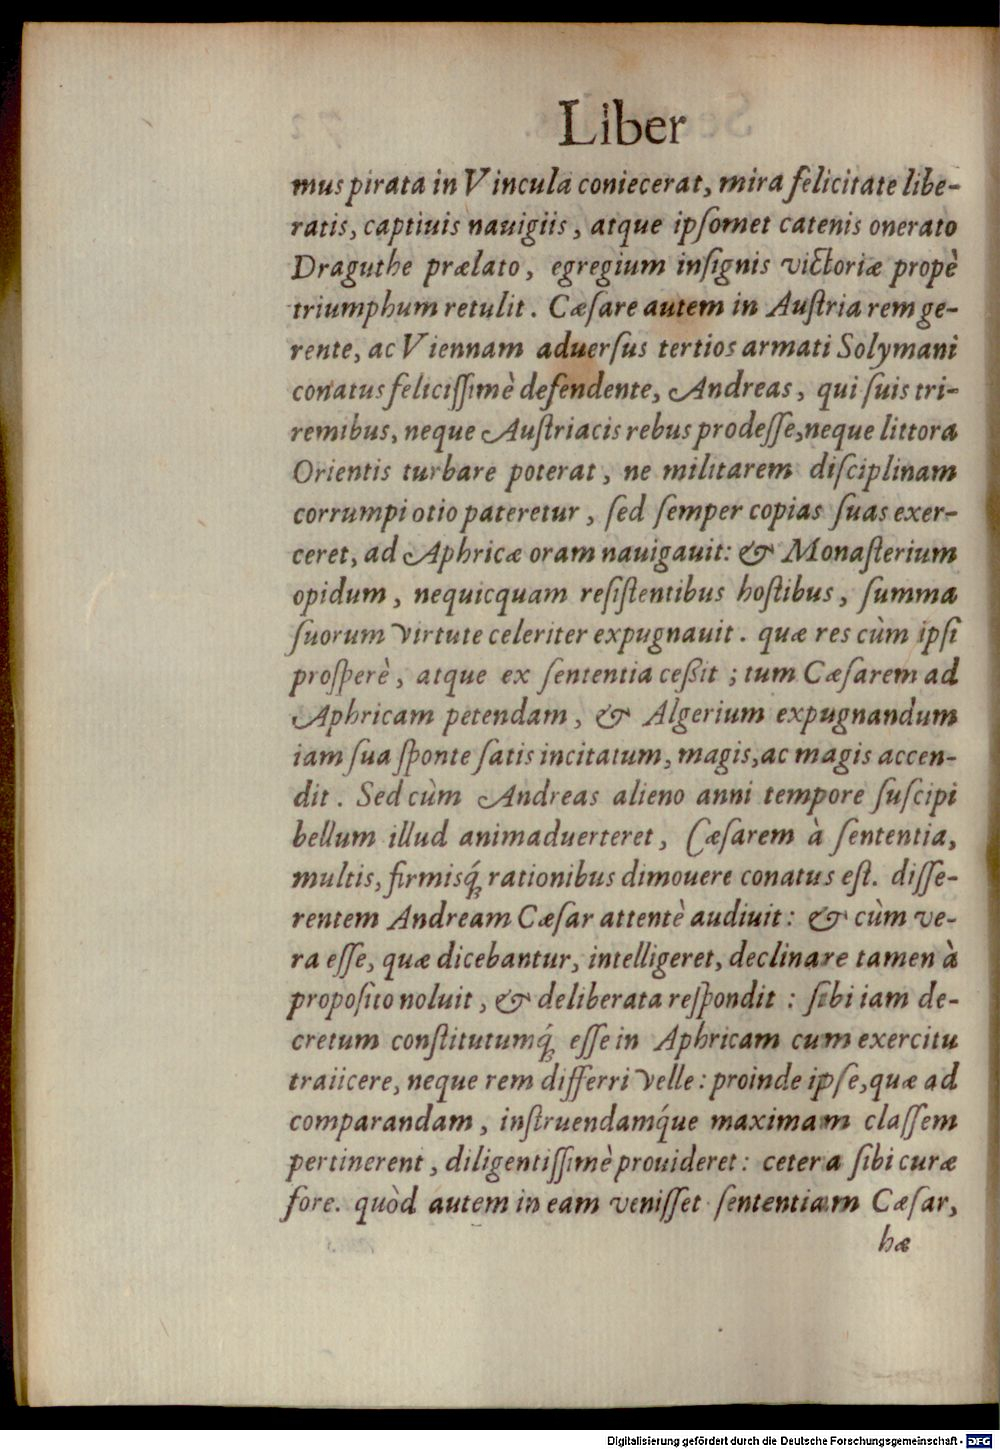 Liber
mus pirata in Vincula coniecerat, mira felicitate libe-
ratis, captiuis nauigiis, atque ipſomet catenis onerato
Draguthe prælato, egregium inſignis victoriæ propè
triumphum retulit. Cæſare autem in Auſtria rem ge-
rente, ac Viennam aduerſus tertios armati Solymani
conatus feliciſſimè defendente, Andreas, qui ſuis tri-
remibus, neque Auſtriacis rebus prodeſſe, neque littora
Orientis turbare poterat, ne militarem diſciplinam
corrumpi otio pateretur, ſed ſemper copias ſuas exer-
ceret, ad Aphricæ oram nauigauit: & Monaſterium
opidum, nequicquam reſiſtentibus hoſtibus, ſumma
ſuorum virtute celeriter expugnauit. quæ res cùm ipſi
proſperè, atque ex ſententia ceßit; tum Cæſarem ad
Aphricam petendam, & Algerium expugnandum
iam ſua ſponte ſatis incitatum, magis, ac magis accen-
dit. Sed cùm Andreas alieno anni tempore ſuſcipi
bellum illud animaduerteret, Cæſarem à ſententia,
multis, firmisq́; rationibus dimouere conatus eſt. diſſe-
rentem Andream Cæſar attentè audiuit: & cùm ve-
ra eſſe, quæ dicebantur, intelligeret, declinare tamen à
propoſito noluit, & deliberata reſpondit: ſibi iam de-
cretum conſtitutumq́; eſſe in Aphricam cum exercitu
traiicere, neque rem differri velle: proinde ipſe, quæ ad
comparandam, inſtruendamq́ue maximam claſſem
pertinerent, diligentiſſimè prouideret: cetera ſibi curæ
fore. quòd autem in eam veniſſet ſententiam Cæſar,
hæ
Digitalisierung gefördert durch die Deutsche Forschungsgemeinschaft - DFG